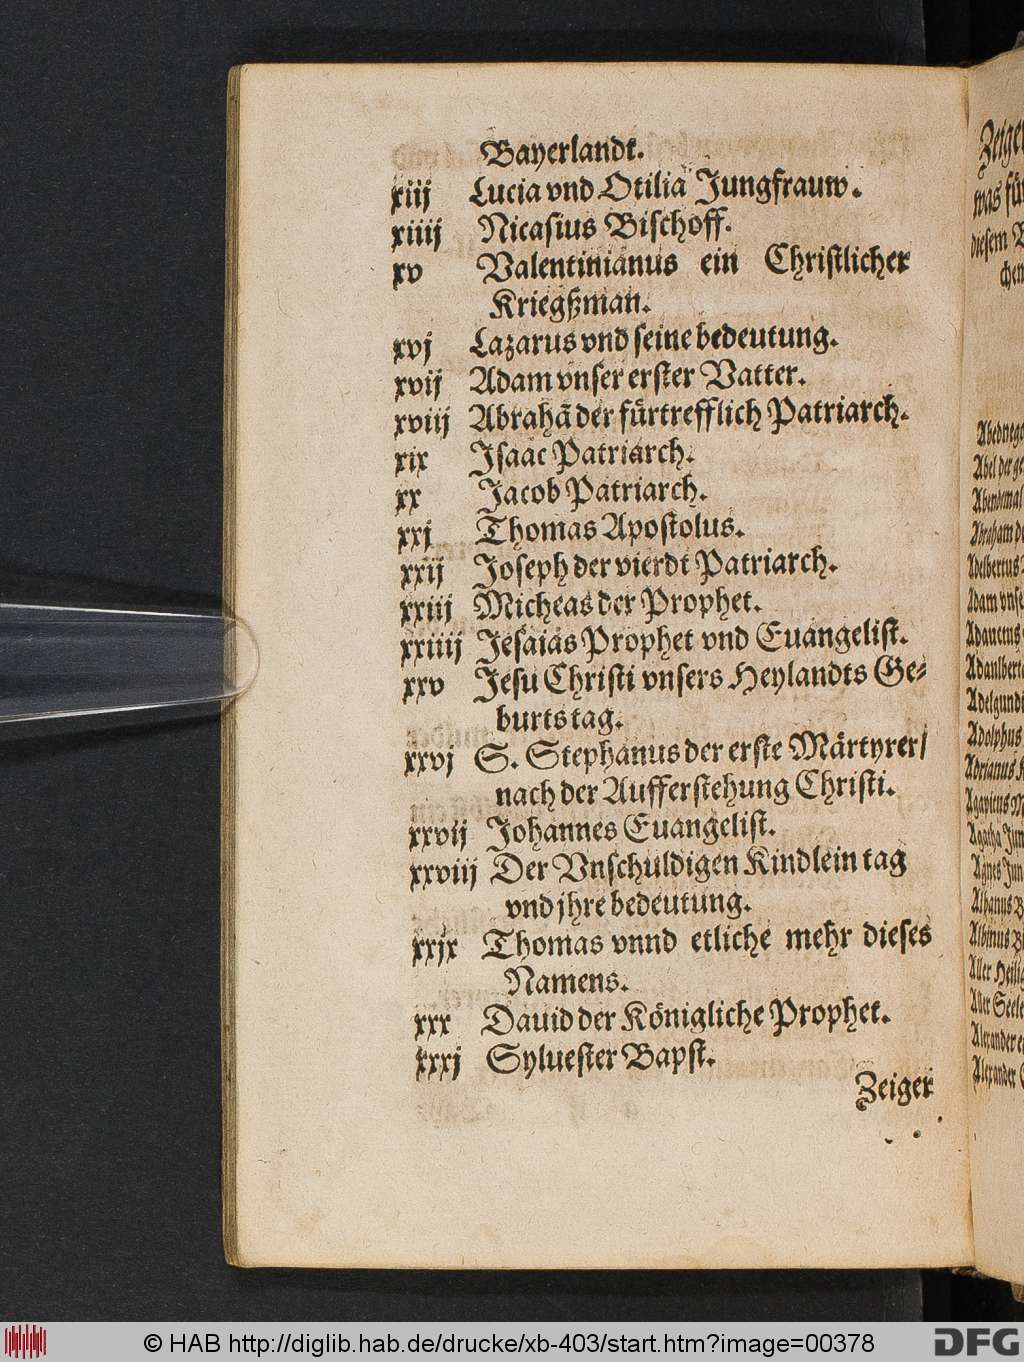 Bayerlandt.
xiij Lucia vnd Otilia Jungfrauw.
xiiij Nicasius Bischoff.
xv Valentinianus ein Christlicher
Kriegßman.
xvj Lazarus vnd seine bedeutung.
xvij Adam vnser erster Vatter.
xviij Abrahã der fürtrefflich Patriarch.
xix Isaac Patriarch.
xx Jacob Patriarch.
xxj Thomas Apostolus.
xxij Joseph der vierdt Patriarch.
xxiij Micheas der Prophet.
xxiiij Jesaias Prophet vnd Euangelist.
xxv Jesu Christi vnsers Heylandts Ge-
burtstag.
xxvj S. Stephanus der erste Märtyrer/
nach der Aufferstehung Christi.
xxvij Johannes Euangelist.
xxviij Der Vnschuldigen Kindlein tag
vnd jhre bedeutung.
xxjx Thomas vnnd etliche mehr dieses
Namens.
xxx Dauid der Königliche Prophet.
xxxj Syluester Bapst.
Zeiger
was
diesem
Abel der
Adolphus
Aller
Aller Seele
Alexander
Alexander
© HAB http://diglib.hab.de/drucke/xb-403/start.htm?image=00378
DFG